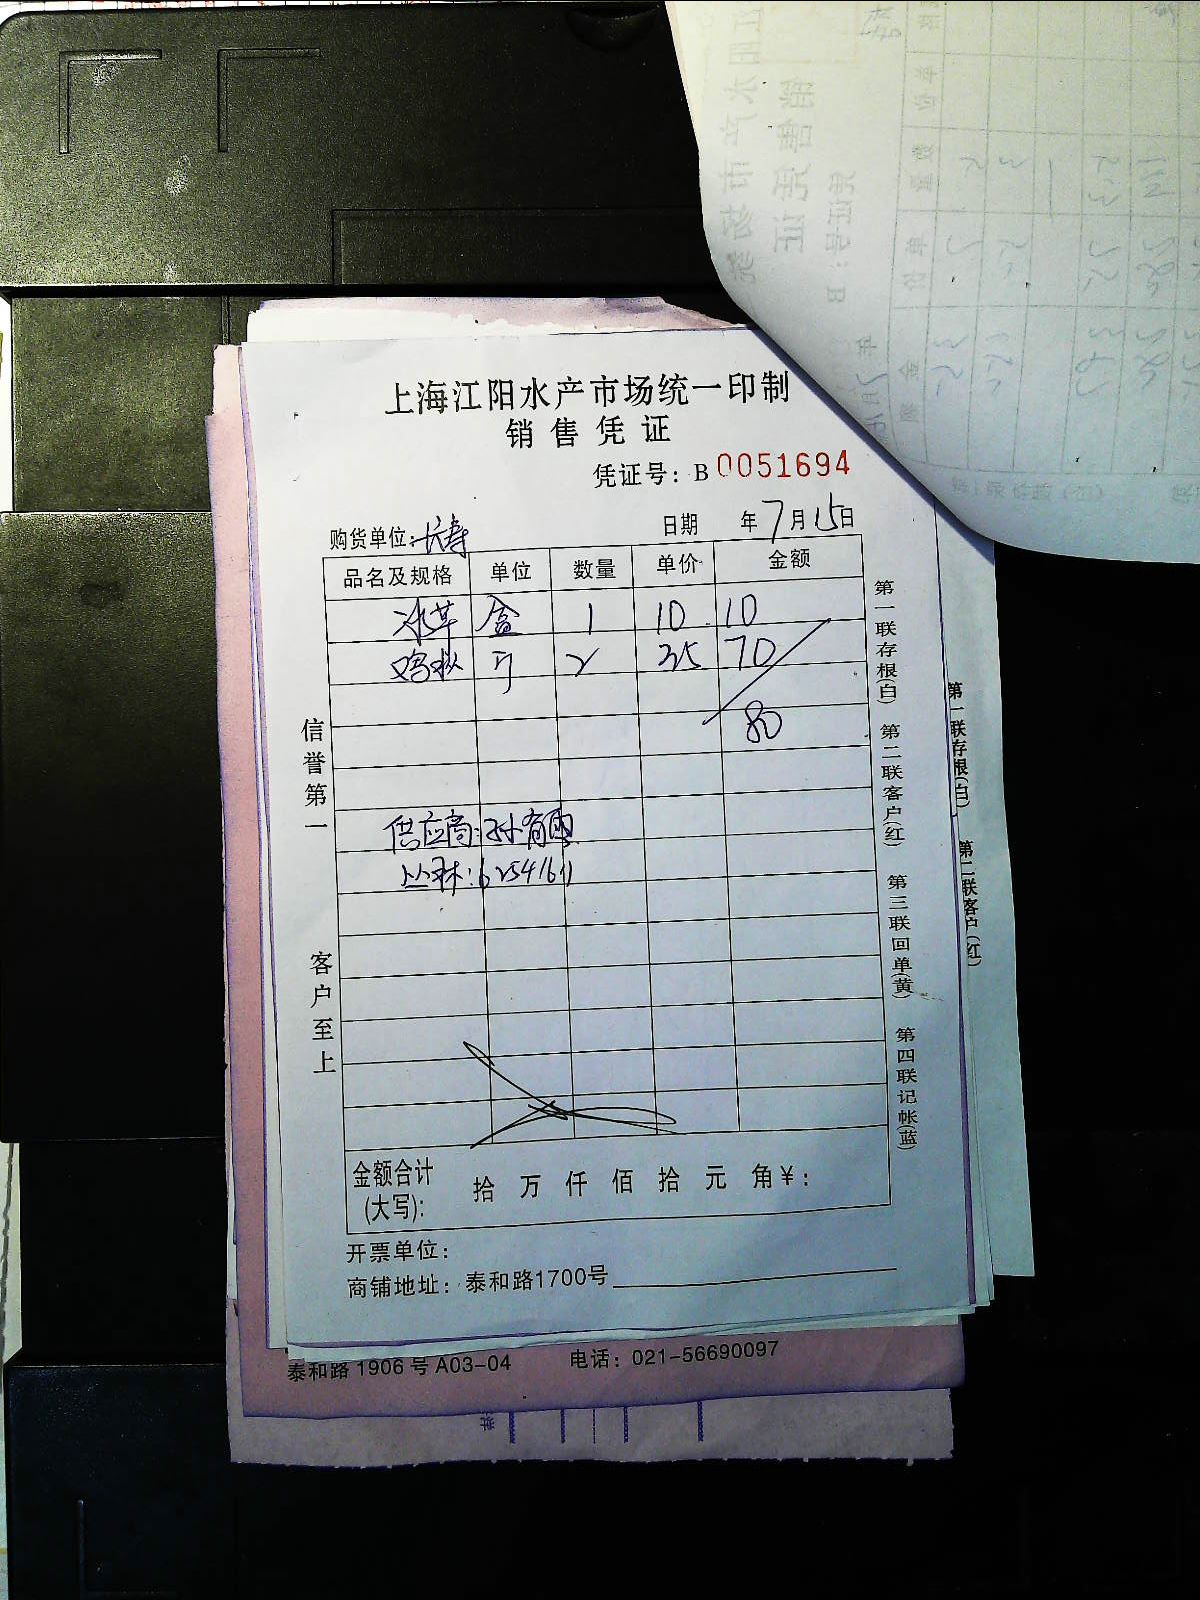 上海江阳水产市场统一印制
销售凭证
凭证号：B 0051694
购货单位：长寿 日期 年7月15日
品名及规格 单位 数量 单价 金额
冰草 盒 1 10 10
鸡枞 斤 2 35 70
80
供应商：孙有国
丛林：62541611
信誉第一
客户至上
第一联存根(白) 第二联客户(红) 第三联回单(黄) 第四联记帐(蓝)
第一联存根(白) 第二联客户(红)
金额合计(大写)： 拾 万 仟 佰 拾 元 角 ¥：
开票单位：
商铺地址：泰和路1700号
泰和路 1906 号 A03-04 电话：021-56690097